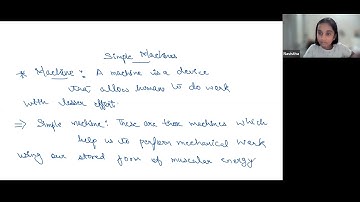 Simple Machines
* Machine : A machine is a device
that allow humans to do work
with lesser effort.
⇒ Simple machine : These are those machines which
help us to perform mechanical work
using our stored form of muscular energy